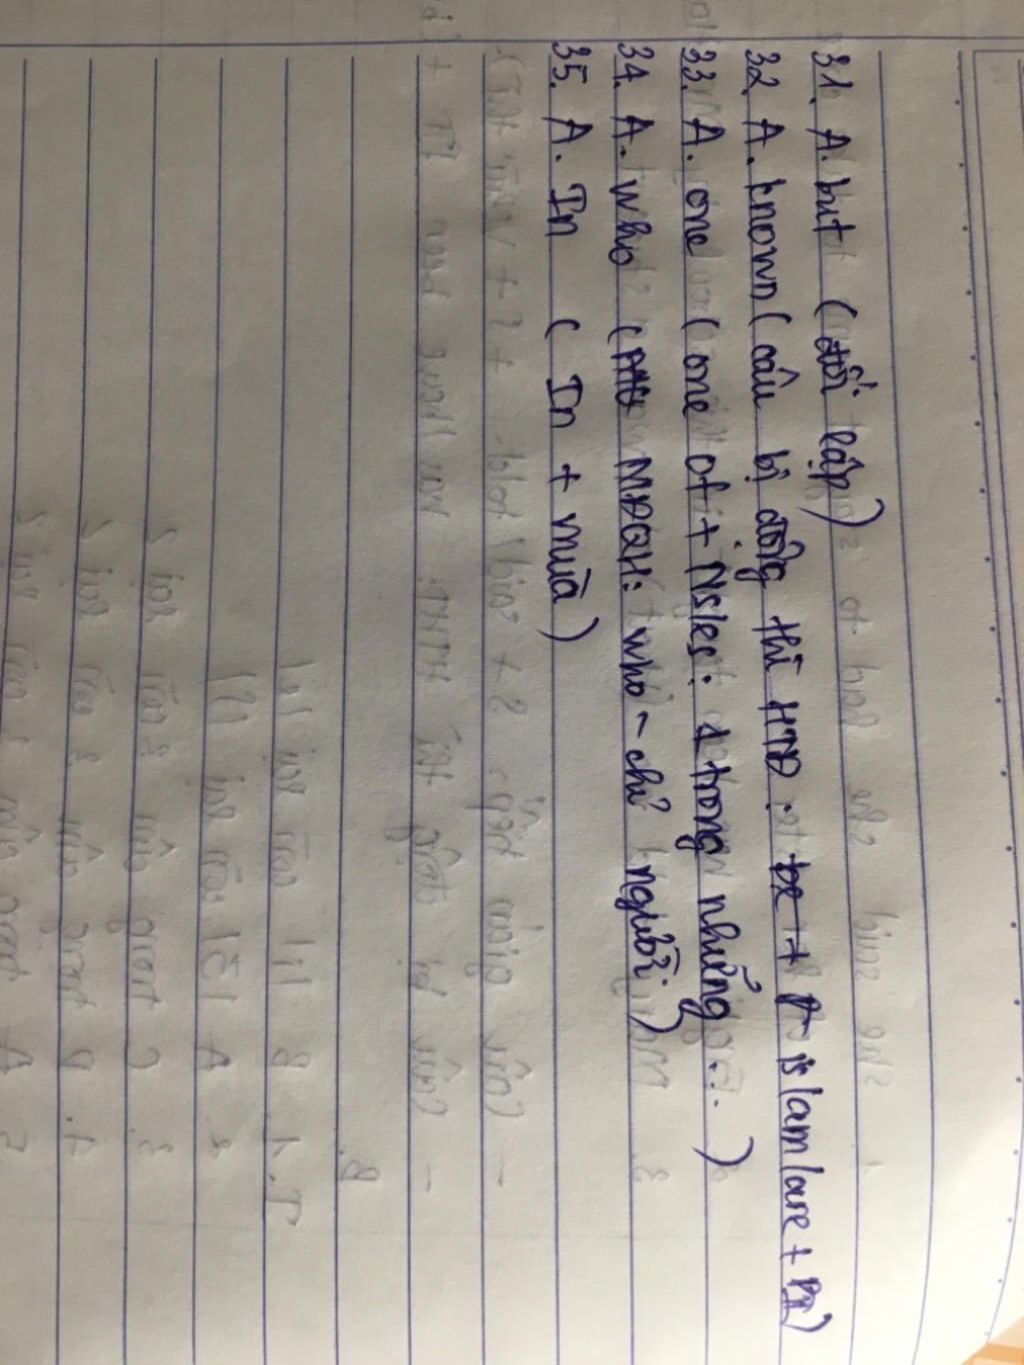 31. A. but (đối lập)
32. A. known (câu bị động thì HTĐ: is/am/are + PII)
33. A. one (one of + Ns/es: 1 trong những...)
34. A. who (MĐQH: who - chỉ người)
35. A. In (In + mùa)